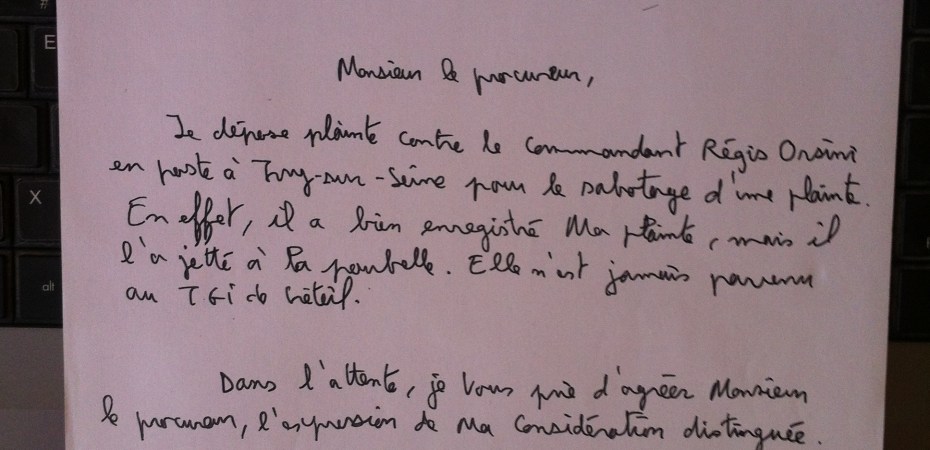 #
E
X
alt
Monsieur le procureur,
Je dépose plainte contre le commandant Régis Orsini
en poste à Ivry-sur-Seine pour le sabotage d'une plainte.
En effet, il a bien enregistré Ma plainte, mais il
l'a jetté à la poubelle. Elle n'est jamais parvenu
au TGI de Créteil.
Dans l'attente, je vous prie d'agréer Monsieur
le procureur, l'expression de ma considération distinguée.